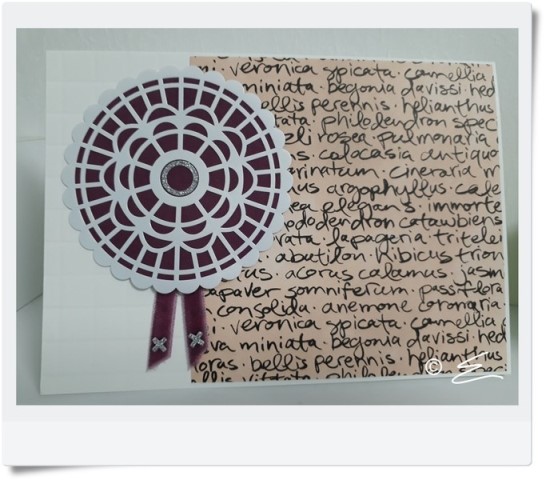 ni · veronica spicata · camellia
miniata · begonia davissi · hed
bellis perennis · helianthus
tata · philodendron spec
eli rosea · pulmonaria
s · colocasia antiquo
arinatum · cineraria
us argophyllus · cale
ea elegans · immorte
pododendron catawbiens
vata · lapageria tritelei
· abutilon · hibicus trion
ras · acorus calamus · jasm
apaver somniferum · passflora
consolida · anemone coronaria ·
i · veronica spicata · camellia
va miniata · begonia davissi · hed
loras · bellis perennis · helianthus
ellis vittata · philodend
©